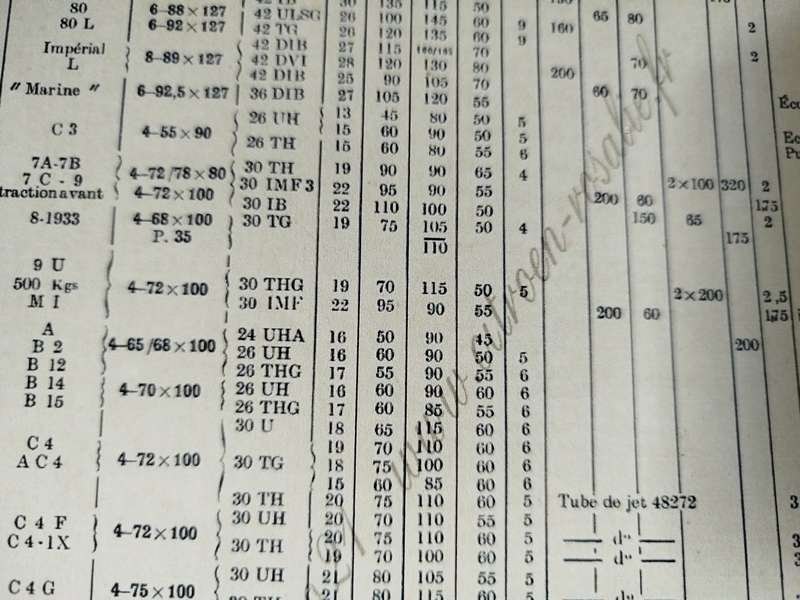 30 135 115 50
80 6–88×127 42 ULSG 26 100 145 60 65 80
80 L 6–92×127 42 TG 26 120 135 60 9 160 2
Impérial 42 DIB 27 115 70 9
L 8–89×127 42 DVI 28 120 130 80 70 2
42 DIB 25 90 105 70 200
" Marine " 6–92,5×127 36 DIB 27 105 120 55 60 70
C 3 4–55×90 26 UH 13 45 80 50 5
15 60 90 50 5
26 TH 15 60 80 55 6
7A-7B 4–72/78×80 30 TH 19 90 90 65 4
7 C - 9 30 IMF3 22 95 90 55 2×100 320 2
traction avant 4–72×100 30 IB 22 110 100 50 200 60 1,75
8-1933 4–68×100 30 TG 19 75 105 50 4 150 65 2
P. 35 110 175
9 U
500 Kgs 4–72×100 30 THG 19 70 115 50 5
M I 30 IMF 22 95 90 55 2×200 2,5
200 60 1,75
A 4–65/68×100 24 UHA 16 50 90 45
B 2 26 UH 16 60 90 50 5 200
B 12 26 THG 17 55 90 55 6
B 14 4–70×100 26 UH 16 60 90 60 6
B 15 26 THG 17 60 85 55 6
30 U 18 65 115 60 6
C 4 19 70 110 60 6
A C 4 4–72×100 30 TG 18 75 100 60 6
15 60 85 60 6
30 TH 20 75 110 60 5 Tube de jet 48272 3
C 4 F 4–72×100 30 UH 20 70 110 55 5 d°
C 4-1X 30 TH 20 75 110 60 5 d° 3
19 70 100 60 5 d° 3
C 4 G 4–75×100 30 UH 21 80 105 55 5
30 TH 21 80 115 60 5 d°
www.citroen-rosalie.fr